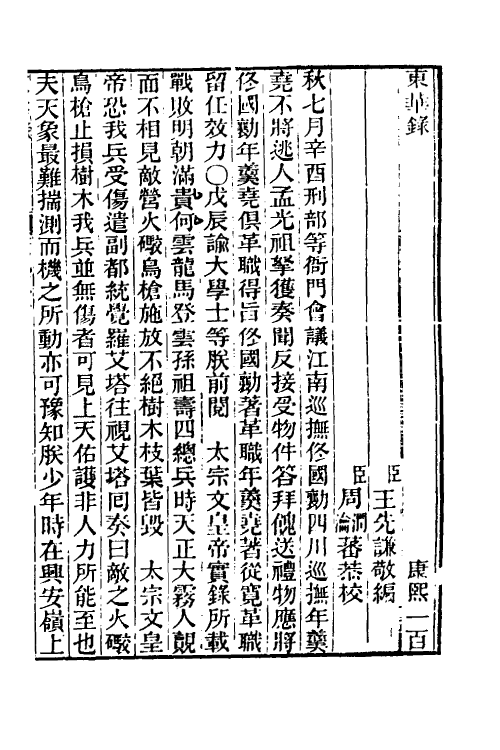 東華錄　康熙一百
臣王先謙敬編
臣周潤蕃周瀹蕃恭校
秋七月辛酉刑部等衙門會議江南巡撫佟國勷四川巡撫年羹
堯不將逃人孟光祖拏獲奏聞反接受物件答拜餽送禮物應將
佟國勷年羹堯俱革職得旨佟國勷著革職年羹堯著從寬革職
留任效力○戊辰諭大學士等朕前閱　太宗文皇帝實錄所載
戰敗明朝滿貴何雲龍馬登雲孫祖壽四總兵時天正大霧人覿
而不相見敵營火礮鳥槍施放不絕樹木枝葉皆毀　太宗文皇
帝恐我兵受傷遣副都統覺羅艾塔往視艾塔囘奏曰敵之火礮
鳥槍止損樹木我兵並無傷者可見上天佑護非人力所能至也
夫天象最難揣測而機之所動亦可豫知朕少年時在興安嶺上